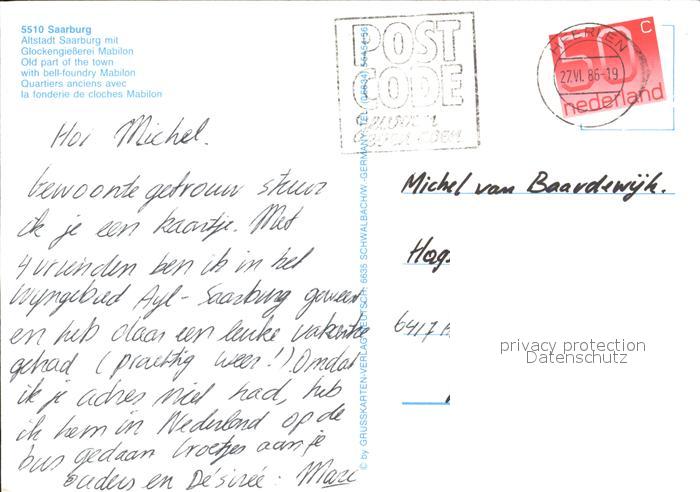 5510 Saarburg
Altstadt Saarburg mit
Glockengießerei Mabilon
Old part of the town
with bell-foundry Mabilon
Quartiers anciens avec
la fonderie de cloches Mabilon
POST
CODE
HEERLEN
27.VI.86-19
50 C
nederland
Hoi Michel.
bewoonte getrouw stuur
ik je een kaartje. Met
4 vrienden ben ik in het
wijngebied Ayl-Saarburg geweest
en heb daar een leuke vakantie
gehad (prachtig weer!) Omdat
ik je adres niet had, heb
ik hem in Nederland op de
bus gedaan Groetjes aan je
ouders en Désirée. Marc
© by GRUSSKARTEN-VERLAG 6635 SCHWALBACH/W.-GERMANY-TEL. (06834)
Michel van Baardewijk.
Hogs
6417
privacy protection
Datenschutz